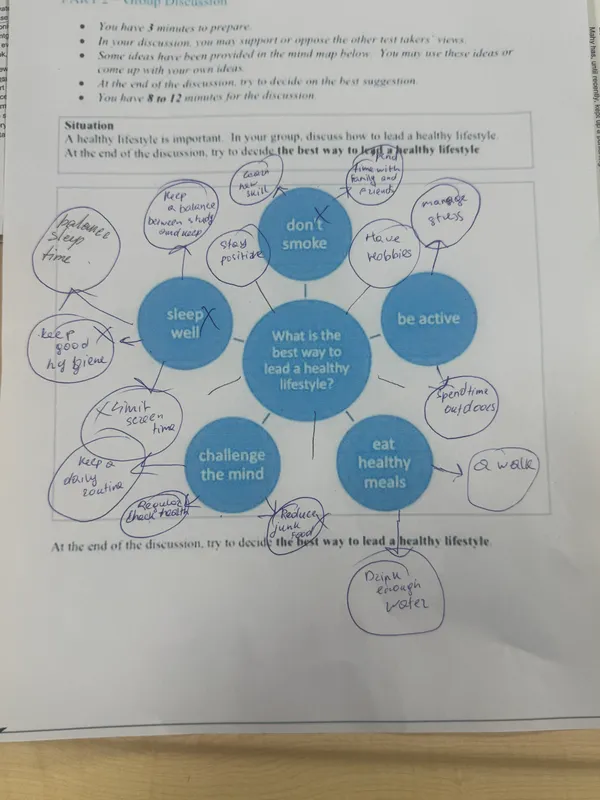 PART 2 – Group Discussion
You have 3 minutes to prepare.
In your discussion, you may support or oppose the other test takers' views.
Some ideas have been provided in the mind map below. You may use these ideas or
come up with your own ideas.
At the end of the discussion, try to decide on the best suggestion.
You have 8 to 12 minutes for the discussion.
Situation
A healthy lifestyle is important. In your group, discuss how to lead a healthy lifestyle.
At the end of the discussion, try to decide the best way to lead a healthy lifestyle
Learn
new
skill
time with
family and
friends
Keep
a balance
between study
and keep
don't
smoke
manage
stress
balance
sleep
time
stay
positive
Have
Hobbies
sleep
well
What is the
best way to
lead a healthy
lifestyle?
be active
keep
good
hygiene
Spend time
outdoors
Limit
screen
time
challenge
the mind
eat
healthy
meals
keep a
daily
routine
a walk
Regular
check health
Reduce
junk
Food
At the end of the discussion, try to decide the best way to lead a healthy lifestyle.
Drink
enough
water